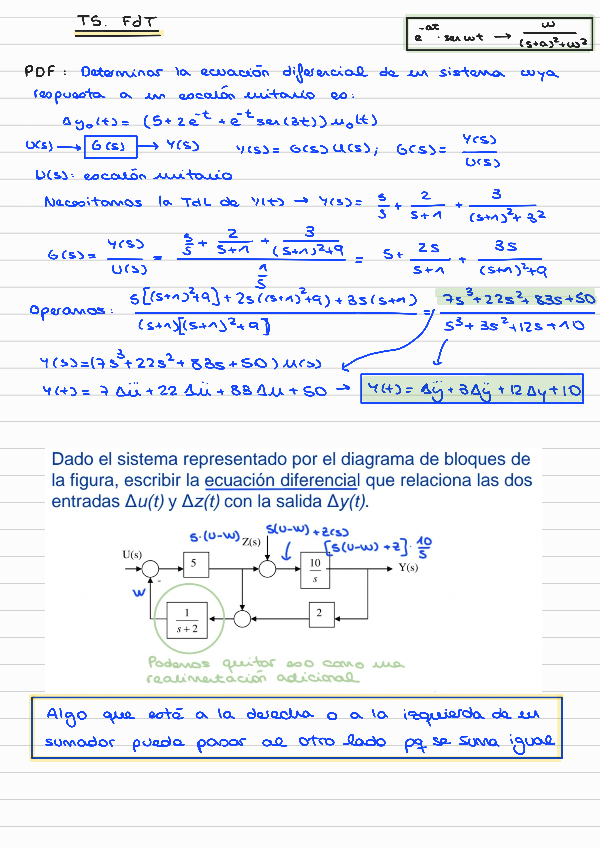 TS. FdT
e^-at · sen wt → w / ((s+a)²+w²)
PDF: Determinar la ecuación diferencial de un sistema cuya
respuesta a un escalón unitario es:
Δy₀(t) = (5+2e^-t + e^-t sen(3t)) u₀(t)
U(s) → G(s) → Y(s) Y(s) = G(s) U(s); G(s) = Y(s)/U(s)
U(s): escalón unitario
Necesitamos la TdL de Y(t) → Y(s) = 5/s + 2/(s+1) + 3/((s+1)²+3²)
G(s) = Y(s)/U(s) = (5/s + 2/(s+1) + 3/((s+1)²+9)) / (1/s) = 5 + 2s/(s+1) + 3s/((s+1)²+9)
Operamos: (5[(s+1)²+9] + 2s((s+1)²+9) + 3s(s+1)) / ((s+1)[(s+1)²+9]) = (7s³+22s²+83s+50) / (s³+3s²+12s+10)
Y(s) = (7s³+22s²+83s+50) U(s)
Y(t) = 7Δü + 22Δü + 83Δu + 50 → Y(t) = Δÿ + 3Δÿ + 12Δy + 10
Dado el sistema representado por el diagrama de bloques de
la figura, escribir la ecuación diferencial que relaciona las dos
entradas Δu(t) y Δz(t) con la salida Δy(t).
5·(U-W) Z(s) 5(U-W)+Z(s)
[5(U-W)+Z]·10/s
U(s) 5 10/s Y(s)
-
W
1/(s+2) 2
Podemos quitar eso como una
realimentación adicional
Algo que esté a la derecha o a la izquierda de un
sumador puede pasar al otro lado pq se suma igual